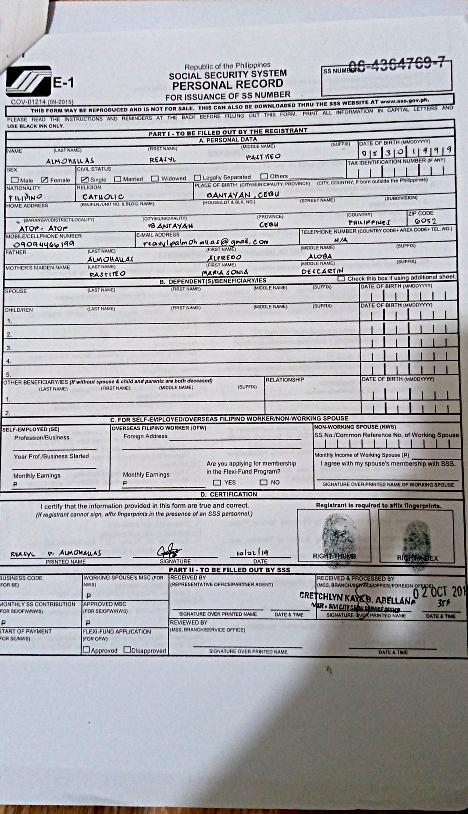 Republic of the Philippines
SOCIAL SECURITY SYSTEM
PERSONAL RECORD
FOR ISSUANCE OF SS NUMBER
E-1
COV-01214 (09-2015)
SS NUMBER 06-4364769-7
THIS FORM MAY BE REPRODUCED AND IS NOT FOR SALE. THIS CAN ALSO BE DOWNLOADED THRU THE SSS WEBSITE AT www.sss.gov.ph.
PLEASE READ THE INSTRUCTIONS AND REMINDERS AT THE BACK BEFORE FILLING OUT THIS FORM. PRINT ALL INFORMATION IN CAPITAL LETTERS AND USE BLACK INK ONLY.
PART I - TO BE FILLED OUT BY THE REGISTRANT
A. PERSONAL DATA
NAME (LAST NAME) (FIRST NAME) (MIDDLE NAME) (SUFFIX) DATE OF BIRTH (MMDDYYYY)
REALYL 05301999
TAX IDENTIFICATION NUMBER (IF ANY)
SEX CIVIL STATUS
Male Female Single Married Widowed Legally Separated Others
NATIONALITY RELIGION PLACE OF BIRTH (CITY/MUNICIPALITY, PROVINCE) (CITY, COUNTRY, if born outside the Philippines)
FILIPINO CATHOLIC BANTAYAN, CEBU
HOME ADDRESS (HOUSE/LOT & BLK. NO.) (STREET NAME) (SUBDIVISION)
(BARANGAY/DISTRICT/LOCALITY) (CITY/MUNICIPALITY) (PROVINCE) (COUNTRY) ZIP CODE
ATOP-ATOP BANTAYAN CEBU PHILIPPINES 6052
MOBILE/CELLPHONE NUMBER E-MAIL ADDRESS TELEPHONE NUMBER (COUNTRY CODE+AREA CODE+TEL. NO.)
N/A
FATHER (LAST NAME) (FIRST NAME) (MIDDLE NAME) (SUFFIX)
ALFREDO ALOBA
MOTHER'S MAIDEN NAME (LAST NAME) (FIRST NAME) (MIDDLE NAME) (SUFFIX)
MARIA SONIA DESCARTIN
B. DEPENDENT(S)/BENEFICIARY/IES
Check this box if using additional sheet.
SPOUSE (LAST NAME) (FIRST NAME) (MIDDLE NAME) (SUFFIX) DATE OF BIRTH (MMDDYYYY)
CHILD/REN (LAST NAME) (FIRST NAME) (MIDDLE NAME) (SUFFIX) DATE OF BIRTH (MMDDYYYY)
1.
2.
3.
4.
5.
OTHER BENEFICIARY/IES (If without spouse & child and parents are both deceased) RELATIONSHIP DATE OF BIRTH (MMDDYYYY)
(LAST NAME) (FIRST NAME) (MIDDLE NAME) (SUFFIX)
1.
2.
C. FOR SELF-EMPLOYED/OVERSEAS FILIPINO WORKER/NON-WORKING SPOUSE
SELF-EMPLOYED (SE) OVERSEAS FILIPINO WORKER (OFW) NON-WORKING SPOUSE (NWS)
Profession/Business Foreign Address SS No./Common Reference No. of Working Spouse
Year Prof./Business Started Monthly Income of Working Spouse (P)
Monthly Earnings Monthly Earnings Are you applying for membership in the Flexi-Fund Program? I agree with my spouse's membership with SSS.
P P YES NO SIGNATURE OVER PRINTED NAME OF WORKING SPOUSE
D. CERTIFICATION
I certify that the information provided in this form are true and correct.
(If registrant cannot sign, affix fingerprints in the presence of an SSS personnel.)
Registrant is required to affix fingerprints.
10/02/19
PRINTED NAME SIGNATURE DATE RIGHT THUMB RIGHT INDEX
PART II - TO BE FILLED OUT BY SSS
BUSINESS CODE (FOR SE) WORKING SPOUSE'S MSC (FOR NWS) RECEIVED BY (REPRESENTATIVE OFFICE/PARTNER AGENT) RECEIVED & PROCESSED BY (MSS, BRANCH/SERVICE OFFICE/FOREIGN OFFICE)
P
02 OCT 201
MONTHLY SS CONTRIBUTION (FOR SE/OFW/NWS) APPROVED MSC (FOR SE/OFW/NWS) SIGNATURE OVER PRINTED NAME DATE & TIME SIGNATURE OVER PRINTED NAME DATE & TIME
P P REVIEWED BY (MSS, BRANCH/SERVICE OFFICE)
START OF PAYMENT (FOR SE/NWS) FLEXI-FUND APPLICATION (FOR OFW)
Approved Disapproved SIGNATURE OVER PRINTED NAME DATE & TIME